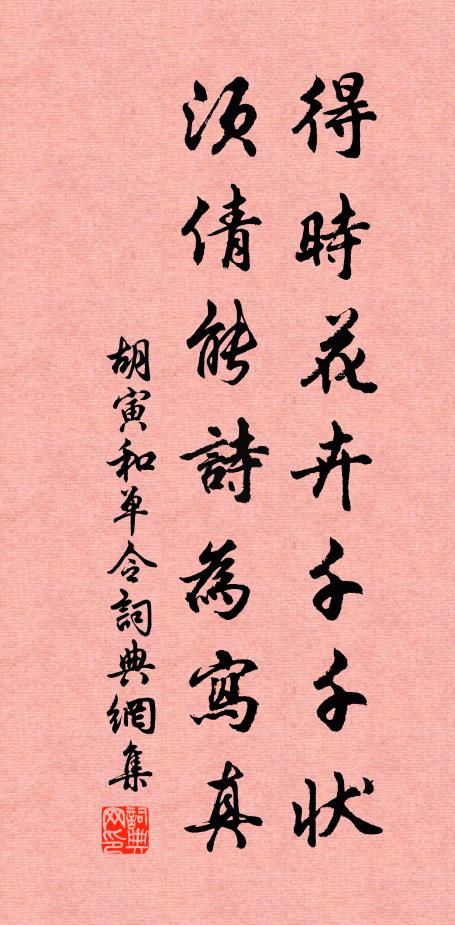 得時花卉千千狀
須倩能詩為寫真
胡寅和单令詞典網集
詞典网印